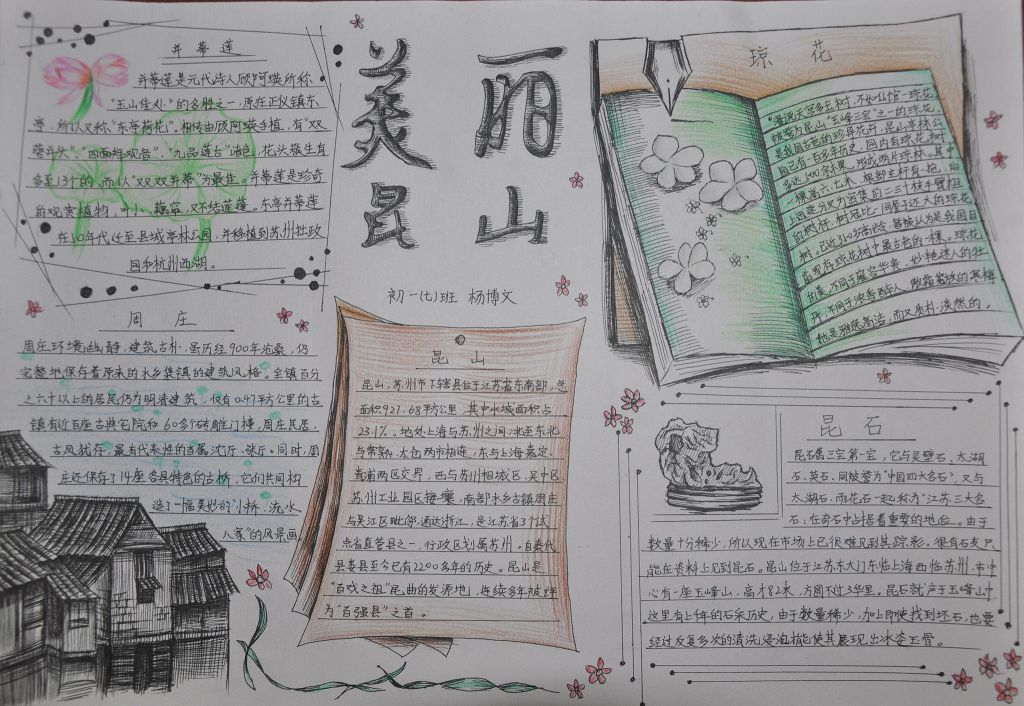 美丽
昆山
初一(七)班 杨博文
并蒂莲
并蒂莲是元代诗人顾阿瑛所称
"玉山佳处"的名胜之一,原在正仪镇东
亭,所以又称"东亭荷花"。相传由顾阿瑛手植,有"双
萼并头"、"四面拜观音"、"九品莲台"诸色,花头簇生有
多至13个的,而以"双双并蒂"为最佳。并蒂莲是珍奇
的观赏植物,叶小,藕窄,又不结莲蓬。东亭并蒂莲
在10年代迁至县城亭林公园,并移植到苏州拙政
园和杭州西湖。
周庄
周庄环境幽静,建筑古朴,虽历经900年沧桑,仍
完整地保存着原来的水乡集镇的建筑风格。全镇百分
之六十以上的居民仍为明清建筑,仅有0.47平方公里的古
镇有近百座古典宅院和60多个砖雕门楼,周庄民居,
古风犹存,最有代表性的当属沈厅、张厅。同时,周
庄还保存了14座各具特色的古桥,它们共同构
造了一幅美妙的"小桥、流水、
人家"的风景画。
昆山
昆山,苏州市下辖县位于江苏省东南部,总
面积921.68平方公里,其中水域面积占
23.1%。地处上海与苏州之间,北至东北
与常熟、太仓两市相连,东与上海嘉定、
青浦两区交界,西与苏州相城区、吴中区、
苏州工业园区接壤,南部水乡古镇周庄
与吴江区毗邻,通达浙江,是江苏省3个试
点省直管县之一,行政区划属苏州。自秦代
县娄县至今已有2200多年的历史。昆山是
"百戏之祖"昆曲的发源地,连续多年被评
为"百强县"之首。
琼花
"道流天守多玉树,不如仙馆一琼花
被誉为昆山"玉峰三宝"之一的琼花,
是我国古老的珍异花卉,昆山亭林公
园已有一百多年历史,园内有琼花树
多达100余棵,形成两片琼林。其中
一棵高六、七米,根部主杆有一抱,向
上逐渐分叉为密集的二三十枝手臂粗
的树杆,树冠比一间屋子还大的琼花
树,已近210岁高龄,曾被认为是我国目
前现存琼花树中最古老的一棵。琼花
的美,不同于雍容华贵、妙艳迷人的牡
丹,不同于浓香醉人、傲霜
他是雅逸高洁,而又质朴、淡然的。
昆石
昆石属三宝第一宝,它与灵璧石、太湖
石、英石,同被誉为"中国四大名石",又与
太湖石、雨花石一起称为"江苏三大名
石,在奇石中占据着重要的地位。由于
数量十分稀少,所以现在市场上已很难见到其踪影。很有石友只
能在资料上见到昆石。昆山位于江苏东大门东临上海西临苏州,市中
心有一座玉峰山,高才82米,方圆不过3华里。昆石就产于玉峰山中
这里有上千年的石采历史,由于数量稀少,加上即使找到坯石,也要
经过反复多次的清洗浸泡才能使其展现出冰姿玉骨。